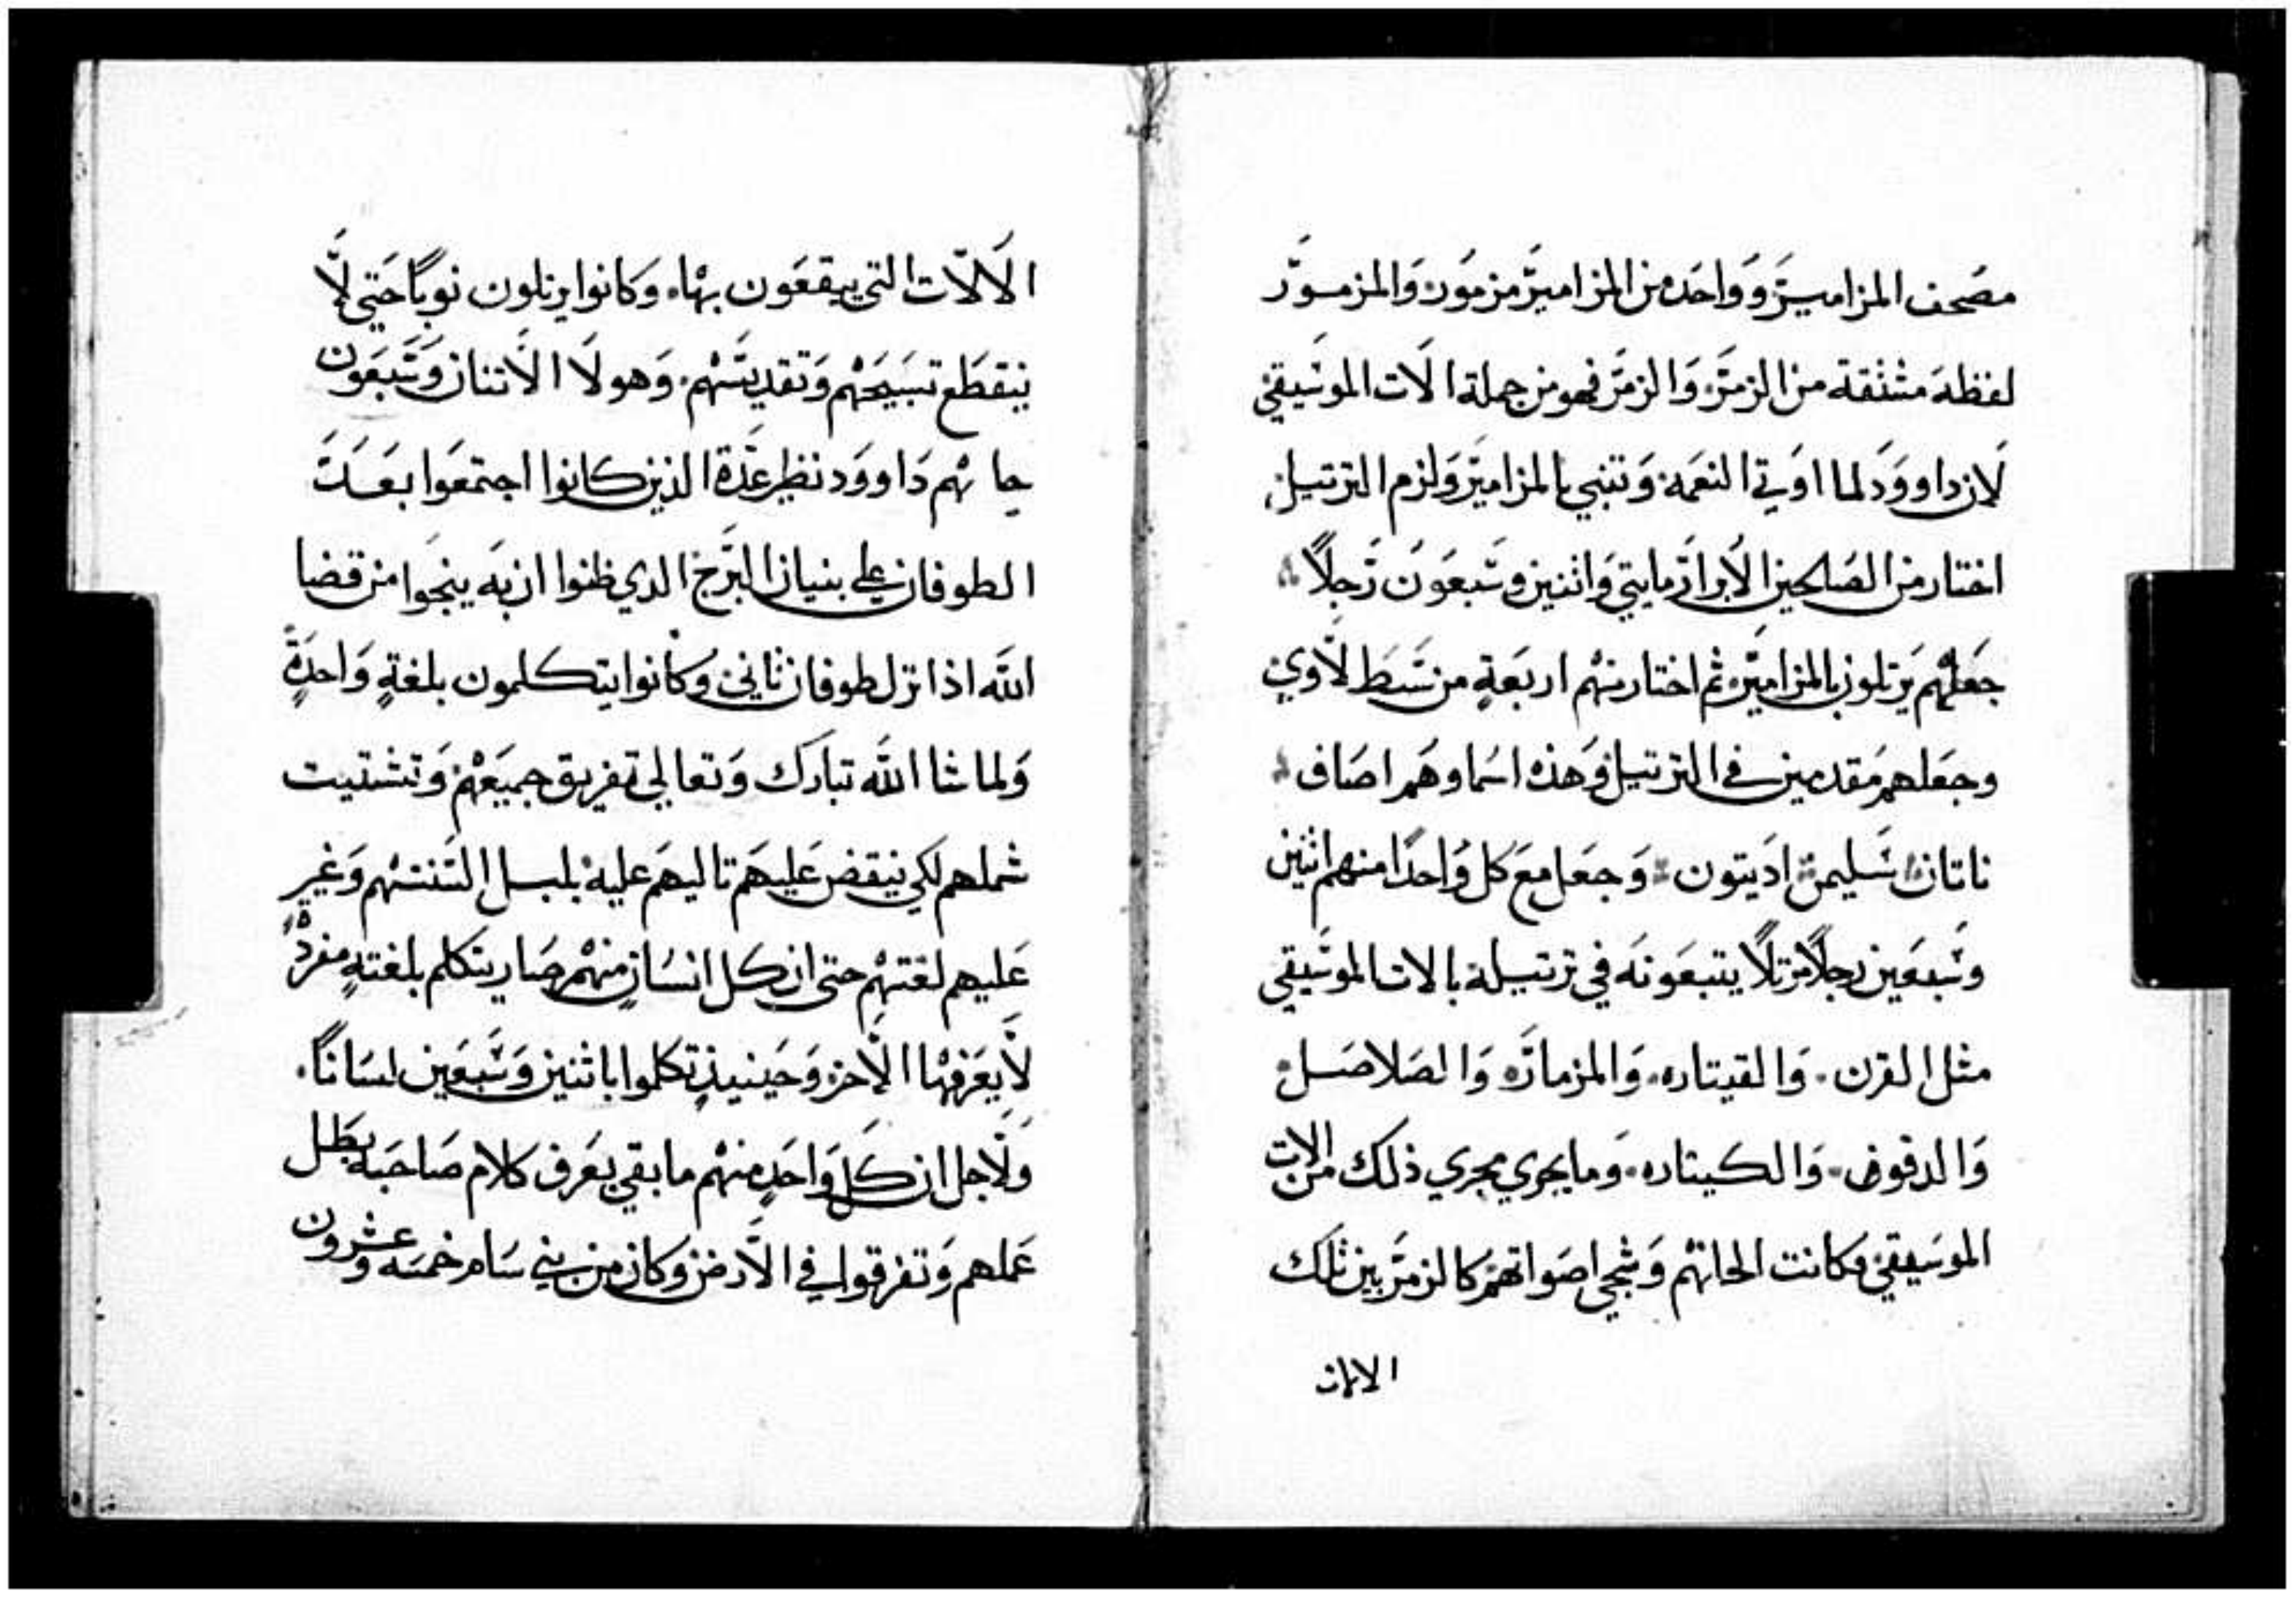 مصحف المزامير وواحده من المزامير مزمور والمزمور
لفظه مشتقة من الزمر والزمر فهو من جملة الات الموسيقي
لان داوود لما اوتي النعمه وتنبي بالمزامير ولزم الترتيل
اختار من الصالحين الابرار مايتي واثنين وسبعون رجلًا
جعلهم يرتلون بالمزامير ثم اختار منهم اربعةٍ من سبط لاوي
وجعلهم مقدمين في الترتيل وهذه اسماوهم اصاف
ناتان سليمن اديتون وجعل مع كل واحدًا منهم اثنين
وسبعين رجلًا مرتلًا يتبعونه في ترتيله بالات الموسيقي
مثل القرن والقيتاره والمزماره والصلاصل
والدفوف والكيتاره وما يجري مجري ذلك من الات
الموسيقي وكانت الحانهم وشجي اصواتهم كالزمر بين تلك
الالات
الالات التي يبقعون بها وكانوا يرتلون نوبًا حتي لا
ينقطع تسبيحهم وتقديسهم وهولا الاتنان وسبعون
جا بهم داوود نظير عدة الذين كانوا اجتمعوا بعد
الطوفان علي بنيان البرج الذي ظنوا ان به ينجوا من قضا
الله اذا نزل طوفان ثاني وكانوا يتكلمون بلغةٍ واحدةٍ
ولما شا الله تبارك وتعالي تفريق جميعهم وتشتيت
شملهم لكي ينقض عليهم تاليهم عليه بلبل السنتهم وغير
عليهم لغتهم حتى ان كل انسانٍ منهم صار يتكلم بلغتهٍ مفرده
لا يعرفها الاخر وحينيذٍ تكلموا باثنين وسبعين لسانًا
ولاجل ان كل واحدٍ منهم ما بقي يعرف كلام صاحبه بطل
عملهم وتفرقوا في الارض وكان من بني سام خمسه وعشرون